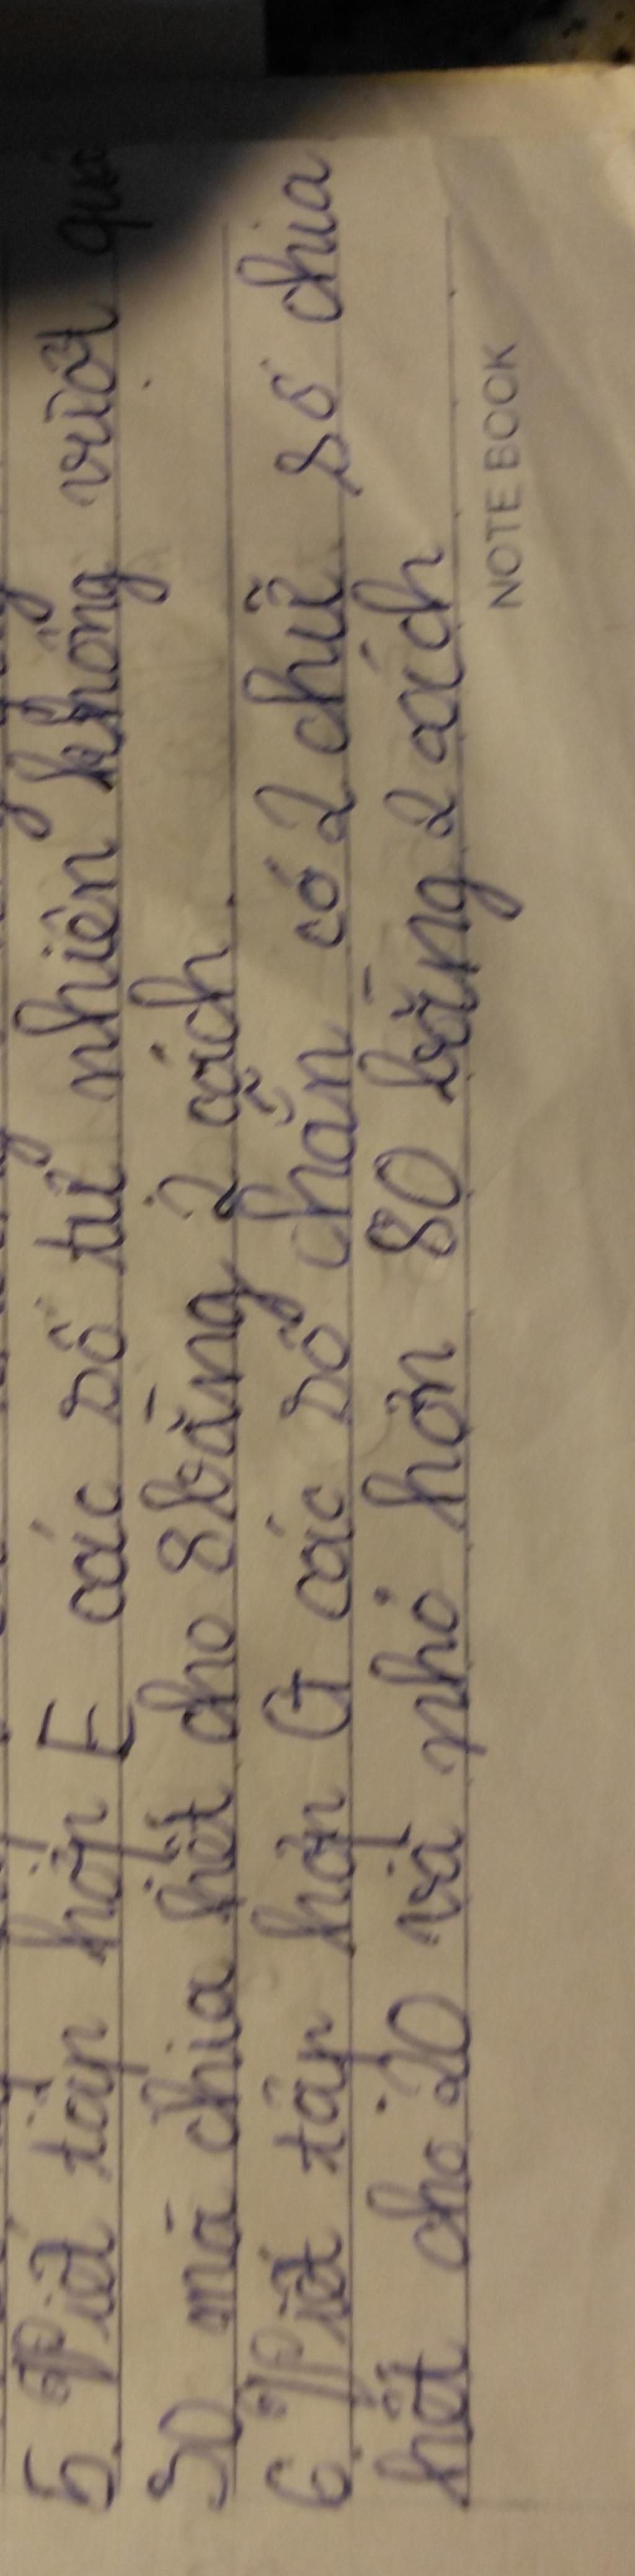 5. Viết tập hợp E các số tự nhiên không vượt quá
50 mà chia hết cho 8 bằng 2 cách.
6. Viết tập hợp G các số chẵn có 2 chữ số chia
hết cho 20 và nhỏ hơn 80 bằng 2 cách
NOTEBOOK